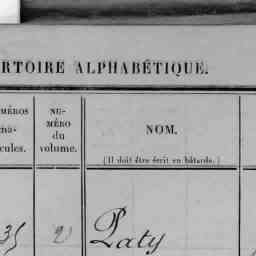 RTOIRE ALPHABÉTIQUE.
MÉROS
cules.
NU-
MÉRO
du
volume.
NOM.
(Il doit être écrit en bâtarde.)
35 20 Paty